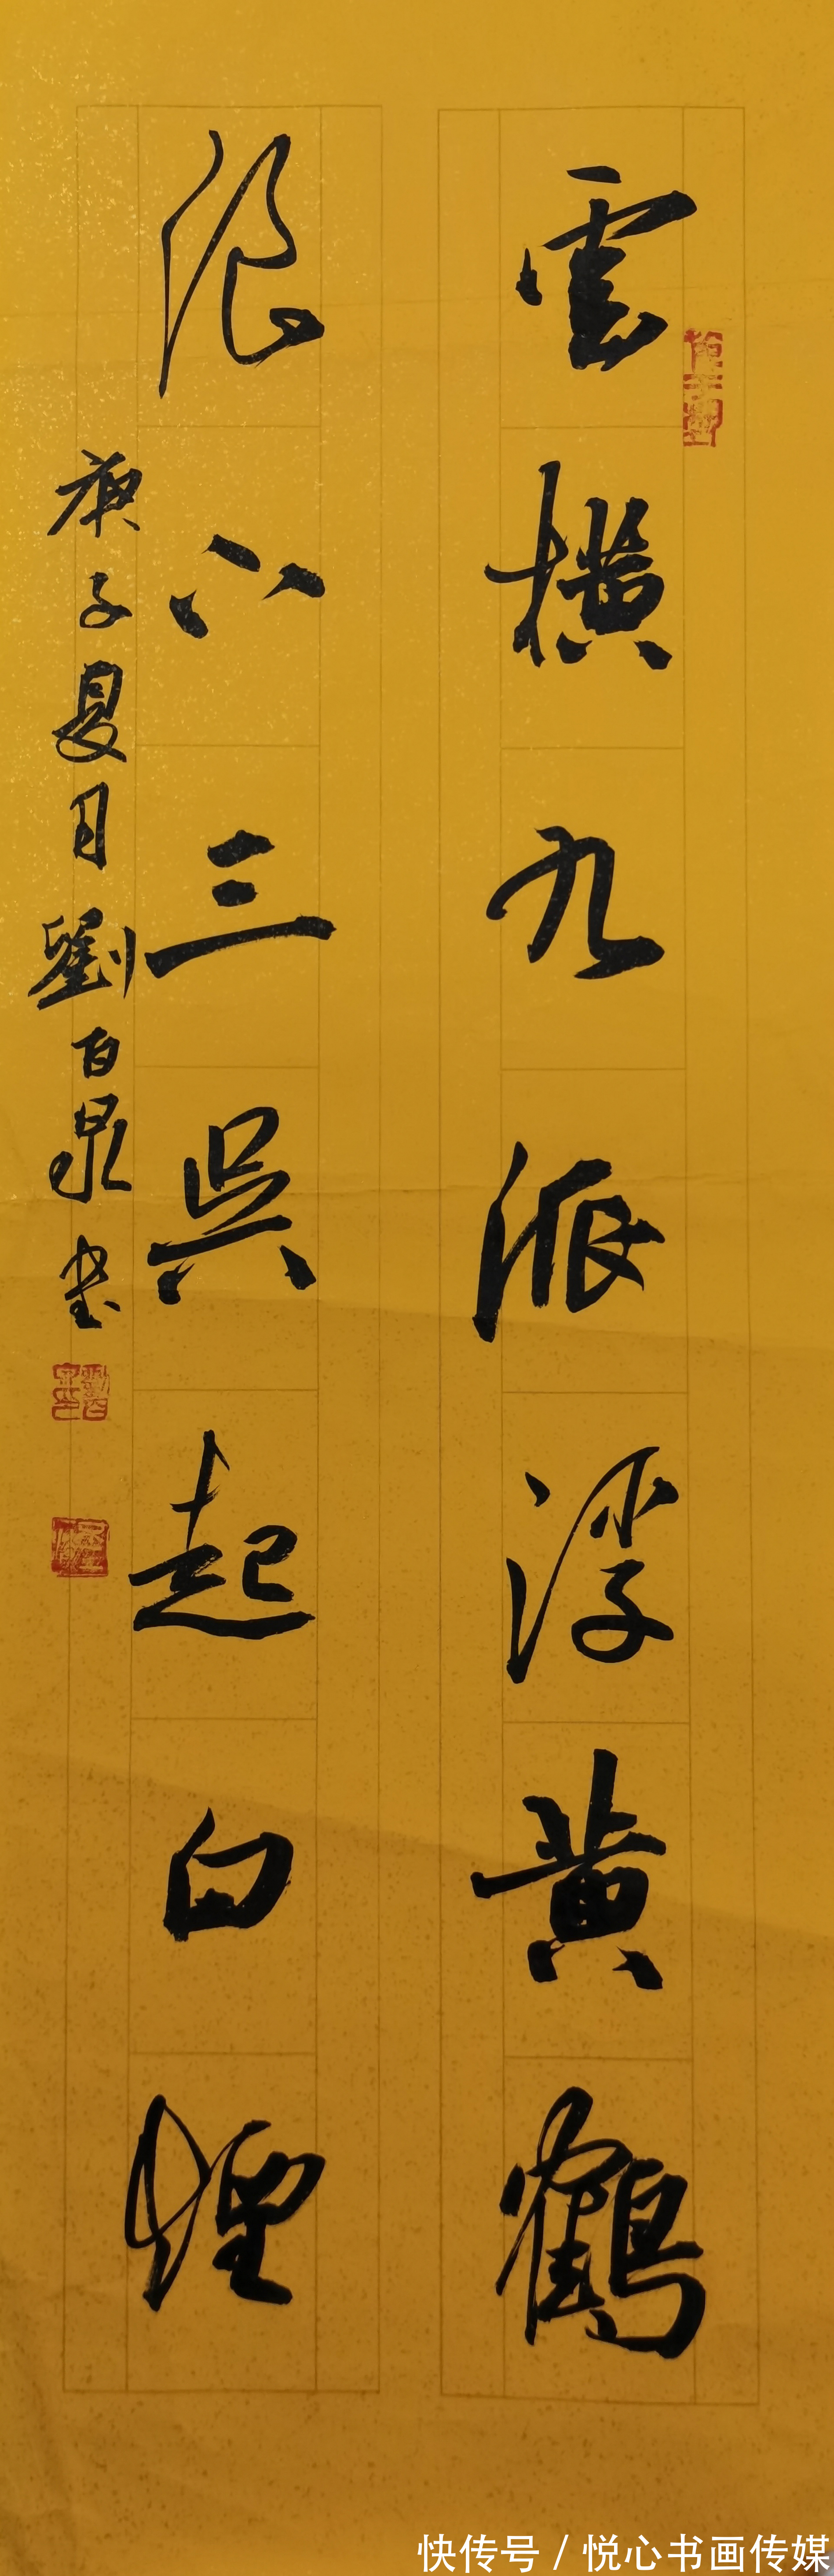 雲橫九派浮黄鶴
浪下三吳起白煙
庚子夏月劉百泉书
快传号 / 悦心书画传媒